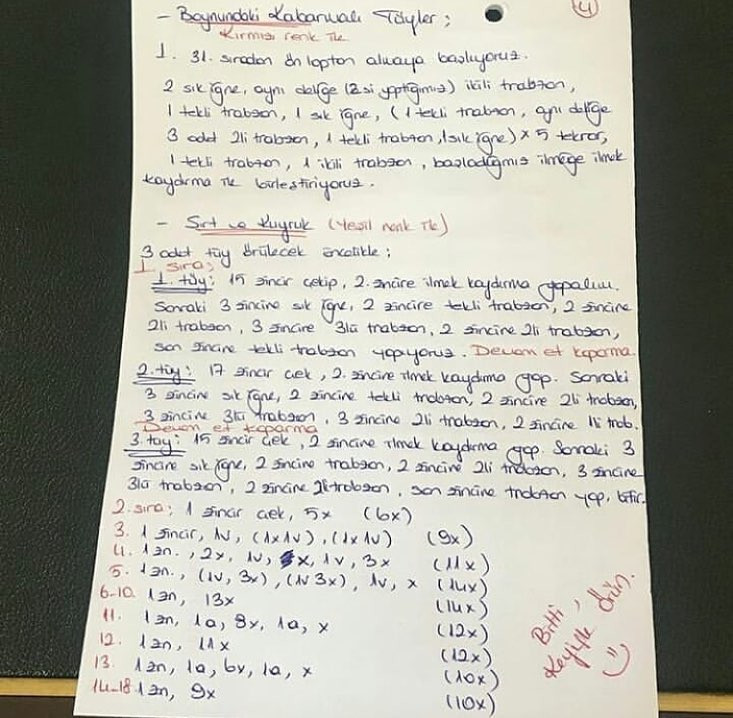 4
- Boynundaki Kabarwalı Tüyler;
Kırmızı renk ile
1. 31. sıradan ön loptan almaya başlıyoruz.
2 sık iğne, aynı deliğe (2 si yaptığımız) ikili trabzan,
1 tekli trabzan, 1 sık iğne, (1 tekli trabzan, aynı deliğe
3 adet 2li trabzan, 1 tekli trabzan, 1 sık iğne) x 5 tekrar,
1 tekli trabzan, 1 ikili trabzan, başladığımız ilmeğe ilmek
kaydırma ile birleştiriyoruz.
- Sırt ve Kuyruk (Yeşil renk ile)
3 adet tüy örülecek öncelikle;
1. sıra;
1. tüy: 15 zincir çekip, 2. zincire ilmek kaydırma yapalım.
Sonraki 3 zincire sık iğne, 2 zincire tekli trabzan, 2 zincire
2li trabzan, 3 zincire 3lü trabzan, 2 zincire 2li trabzan,
son zincire tekli trabzan yapıyoruz. Devam et koparma.
2. tüy: 17 zincir çek, 2. zincire ilmek kaydırma yap. Sonraki
3 zincire sık iğne, 2 zincire tekli trabzan, 2 zincire 2li trabzan,
3 zincire 3lü trabzan, 3 zincire 2li trabzan, 2 zincire 1li trab.
Devam et koparma
3. tüy: 15 zincir çek, 2 zincire ilmek kaydırma yap. Sonraki 3
zincire sık iğne, 2 zincire trabzan, 2 zincire 2li trabzan, 3 zincire
3lü trabzan, 2 zincire 2li trabzan, son zincire trabzan yap, bitir.
2. sıra; 1 zincir çek, 5x (6x)
3. 1 zincir, 1v, (1x1v), (1x1v) (9x)
4. 1zn., 2x, 1v, x, 1v, 3x (11x)
5. 1zn., (1v, 3x), (1v 3x), 1v, x (14x)
6-10. 1zn, 13x (14x)
11. 1zn, 1a, 8x, 1a, x (12x)
12. 1zn, 11x (12x)
13. 1zn, 1a, 6x, 1a, x (10x)
14-18. 1zn, 9x (10x)
Bitti,
Keyifle Örün.